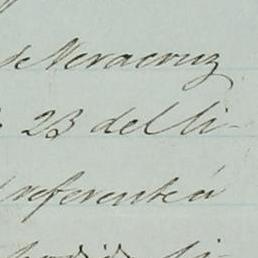 de Veracruz
23 del li-
referente á